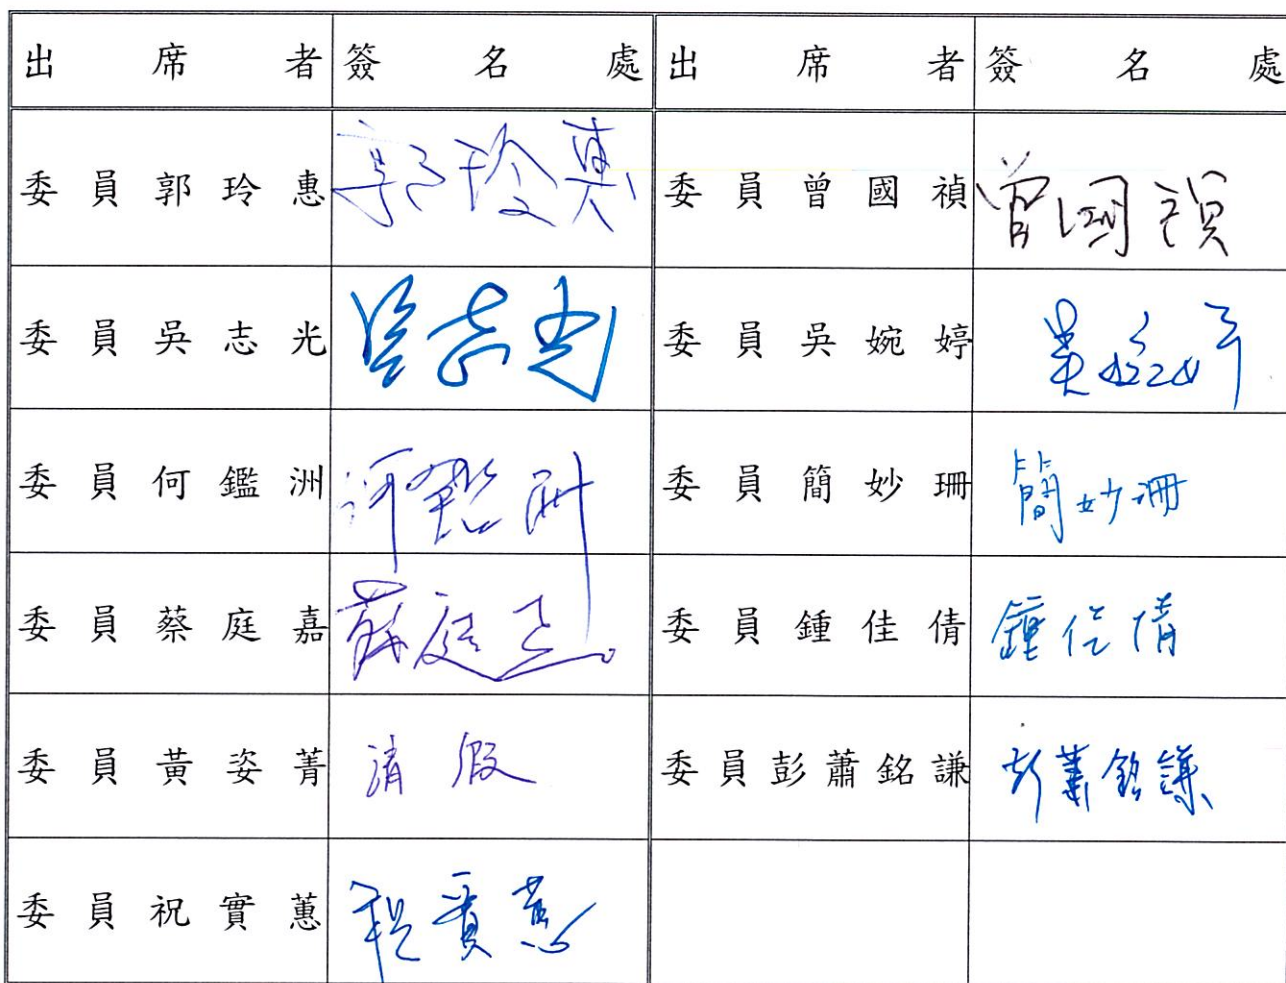 出席者 簽名處 出席者 簽名處
委員郭玲惠 郭玲惠 委員曾國禎 曾國禎
委員吳志光 吳志光 委員吳婉婷 吳婉婷
委員何鑑洲 何鑑洲 委員簡妙珊 簡妙珊
委員蔡庭嘉 蔡庭嘉 委員鍾佳倩 鍾佳倩
委員黃姿菁 請假 委員彭蕭銘謙 彭蕭銘謙
委員祝實蕙 祝實蕙